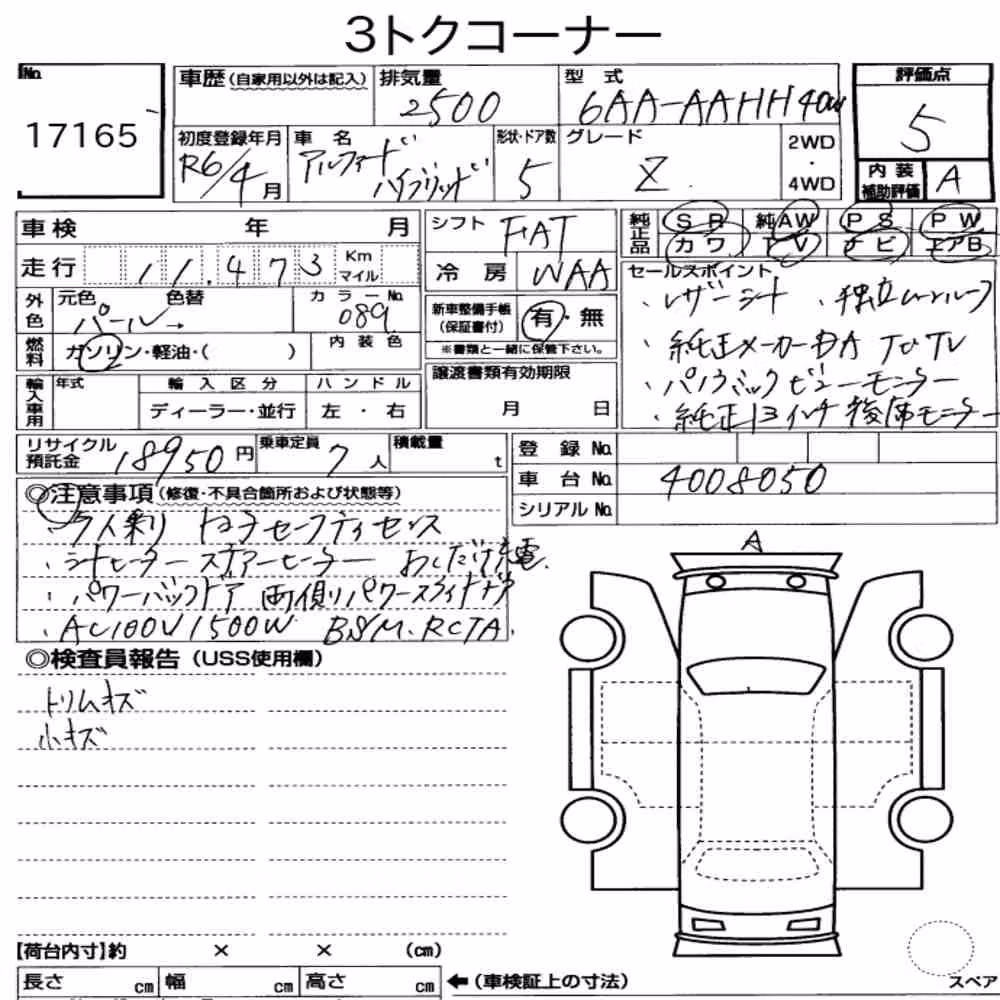 3トクコーナー
No.
17165
車歴(自家用以外は記入)
排気量
2500
型式
6AA-AAHH40W
評価点
5
内装
補助評価
A
初度登録年月
R6/4月
車名
アルファード
ハイブリッド
形状・ドア数
5
グレード
Z
2WD
・
4WD
車検 年 月
シフト
FAT
純正品
SR 純AW PS PW
カワ TV ナビ エアB
走行 11.473 Km マイル
冷房
WAA
セールスポイント
・レザーシート ・独立ムーンルーフ
・純正メーカーDA TV
・パノラミックビューモニター
・純正13インチ後席モニター
外色
元色
パール→
色替
カラーNo.
089
新車整備手帳
(保証書付)
有・無
※書類と一緒に保管下さい。
燃料
ガソリン・軽油・( )
内装色
輸入車用
年式
輸入区分
ディーラー・並行
ハンドル
左・右
譲渡書類有効期限
月 日
リサイクル
預託金
18950円
乗車定員
7人
積載量
t
登録No.
車台No.
4008050
シリアルNo.
◎注意事項(修復・不具合箇所および状態等)
・7人乗り トヨタセーフティセンス
・シートヒーター ステアヒーター おくだけ充電
・パワーバックドア 両側パワースライドドア
・AC100V1500W BSM.RCTA.
◎検査員報告(USS使用欄)
トリムキズ
小キズ
A
【荷台内寸】約 × × (cm)
長さ cm 幅 cm 高さ cm
←(車検証上の寸法)
スペア